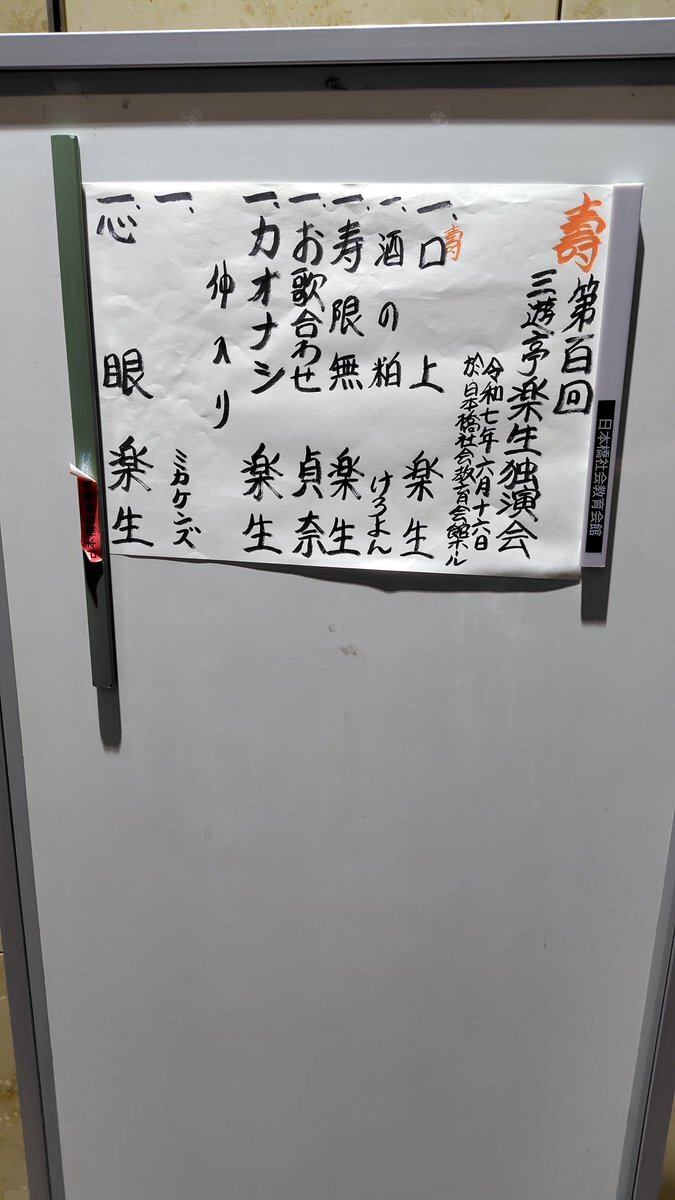 壽 第百回
三遊亭楽生独演会
令和七年六月十六日
於 日本橋社会教育会館ホール
壽
一、口上 楽生
一、酒の粕 けろよん
一、寿限無 楽生
一、お歌合わせ 貞奈
一、カオナシ 楽生
仲入り
一、 ミカケンズ
一、心眼 楽生
日本橋社会教育会館